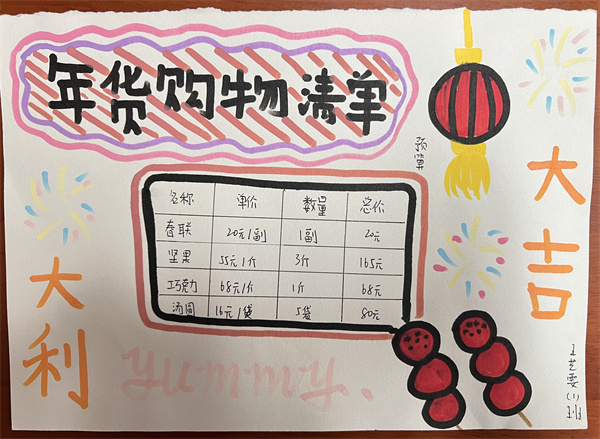 年货购物清单
预算
名称 单价 数量 总价
春联 20元/副 1副 20元
坚果 55元/斤 3斤 165元
巧克力 68元/斤 1斤 68元
汤圆 16元/袋 5袋 80元
大吉
大利
yummy.
王艺雯(1)班